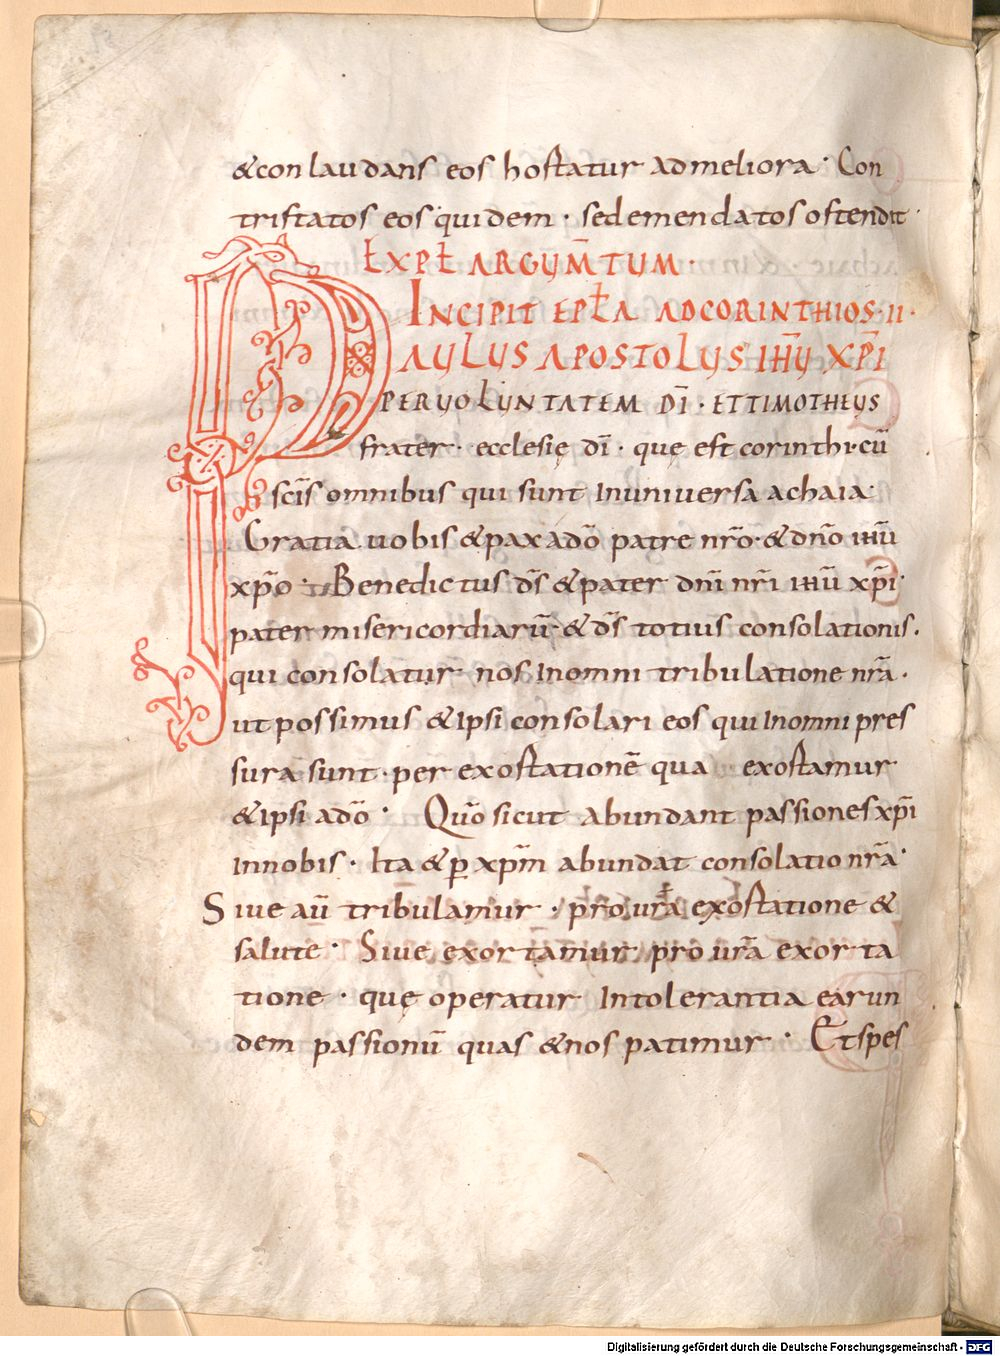 &conlaudans eos hortatur admeliora· Con
tristatos eos quidem· sedemendatos ostendit·
EXPŁ ARGUM̄TUM·
INCIPIT EPŁA ADCORINTHIOS·II·
PAULUS APOSTOLUS IH̄U XP̄I
PERUOLUNTATEM DĪ· ETTIMOTHEUS
frater· ecclesię dī· quę est corinthi·cū
sc̄is omnibus qui sunt Inuniuersa achaia·
Gratia uobis &pax adō patre nr̄o·&dn̄o ihū
xp̄o· Benedictus d̄s &pater dn̄i nr̄i ihū xp̄i·
pater misericordiarū·&d̄s totius consolationis·
qui consolatur nos Inomni tribulatione nr̄a·
ut possimus &ipsi consolari eos qui Inomni pres
sura sunt·per exortationē qua exortamur
&ipsi adō· Qūo sicut abundant passiones xp̄i
Innobis· Ita &p̱ xp̄m abundat consolatio nr̄a·
Siue aū tribulamur· pro ur̄a exortatione &
salute· Siue exortamur pro ur̄a exorta
tione· quę operatur Intolerantia earun
dem passionū quas &nos patimur· Et spes
Digitalisierung gefördert durch die Deutsche Forschungsgemeinschaft - DFG